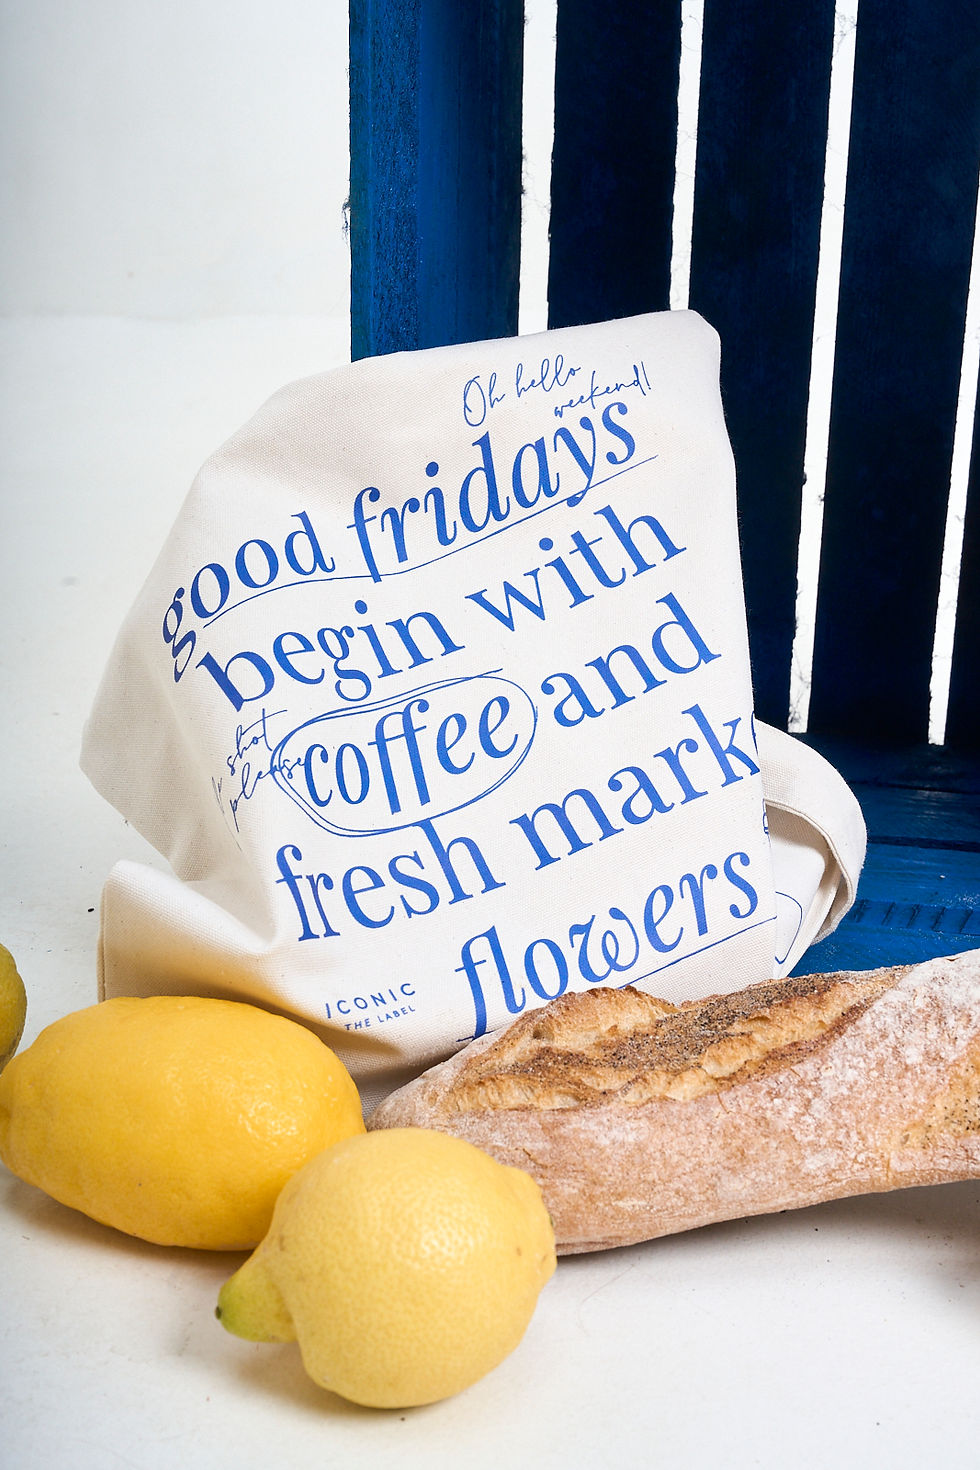 Oh hello
weekend!
good fridays
begin with
shot
please
coffee and
fresh mark
flowers
ICONIC
THE LABEL